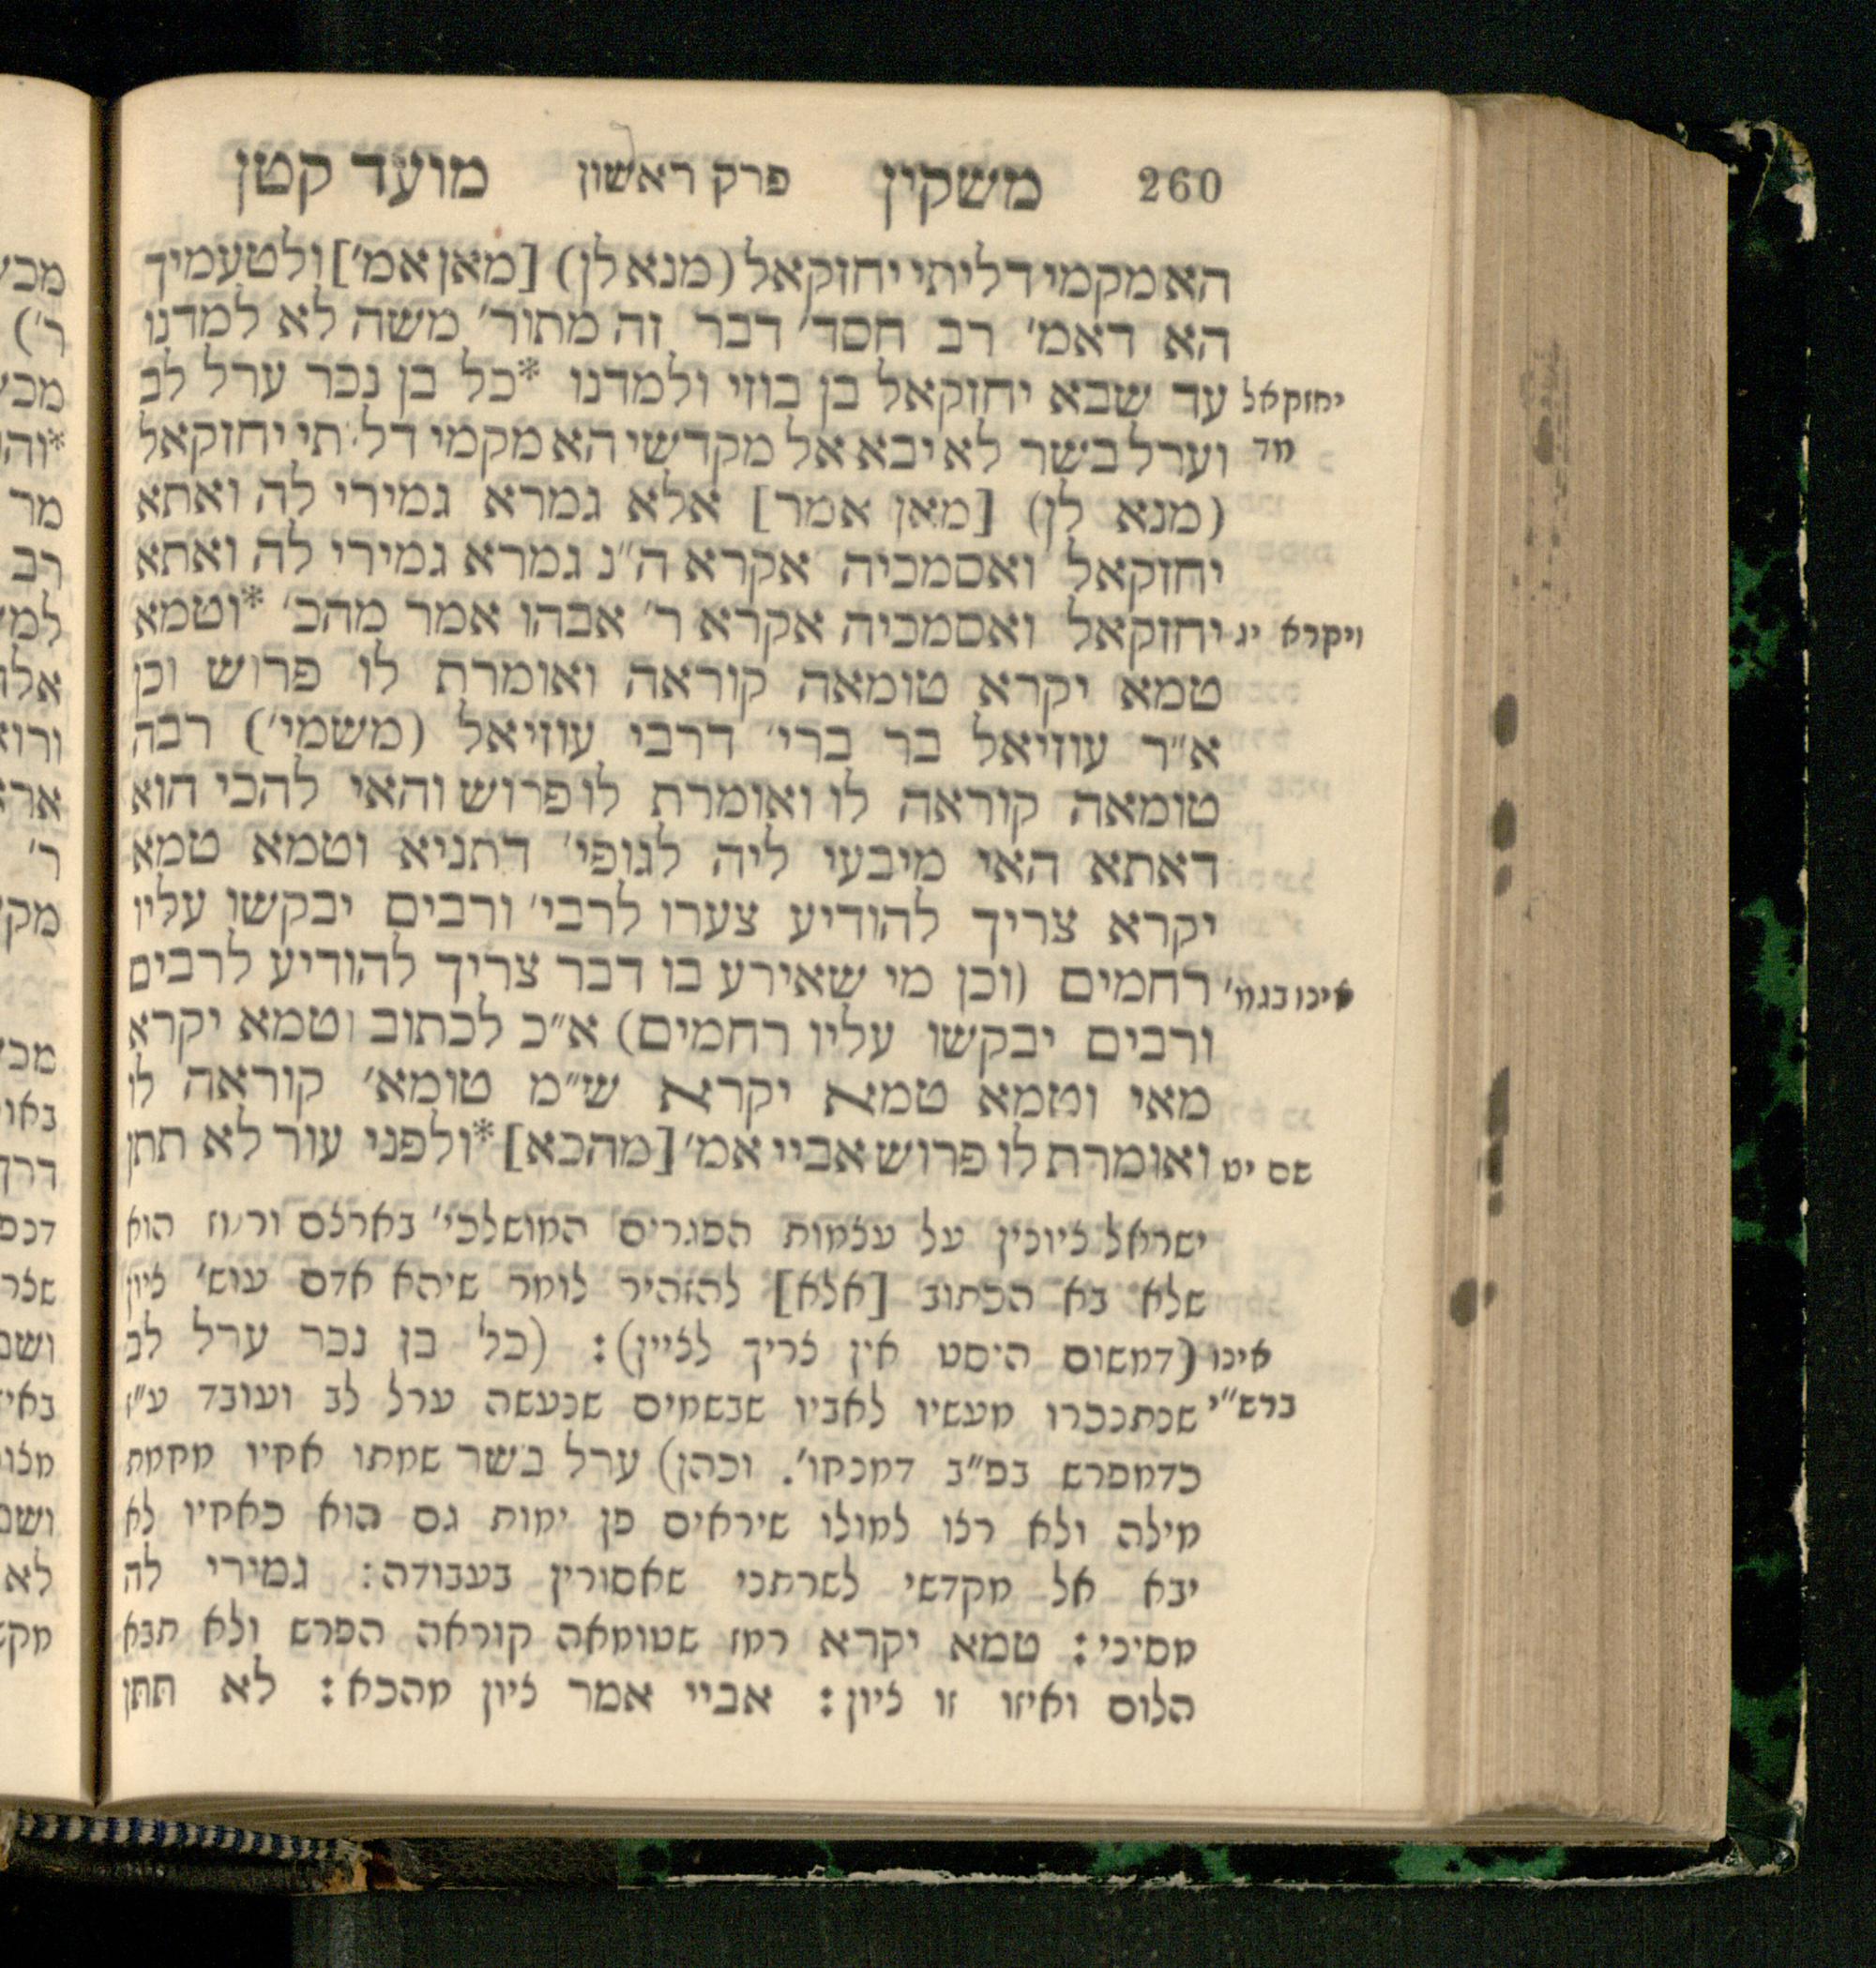 260 משקין פרק ראשון מועד קטן
הא מקמי דליתי יחזקאל (מנא לן) [מאן אמ׳] ולטעמיך
הא דאמ׳ רב חסד׳ דבר זה מתור׳ משה לא למדנו
יחזקאל עד שבא יחזקאל בן בוזי ולמדנו *כל בן נכר ערל לב
מד וערל בשר לא יבא אל מקדשי הא מקמי דליתי יחזקאל
(מנא לן) [מאן אמר] אלא גמרא גמירי לה ואתא
יחזקאל ואסמכיה אקרא ה״נ גמרא גמירי לה ואתא
ויקרא יג יחזקאל ואסמכיה אקרא ר׳ אבהו אמר מהכ׳ *וטמא
טמא יקרא טומאה קוראה ואומרת לו פרוש וכן
א״ר עוזיאל בר ברי׳ דרבי עוזיאל (משמי׳) רבה
טומאה קוראה לו ואומרת לו פרוש והאי להכי הוא
דאתא האי מיבעי ליה לגופי׳ דתניא וטמא טמא
יקרא צריך להודיע צערו לרבי׳ ורבים יבקשו עליו
אינו בגמ׳ רחמים (וכן מי שאירע בו דבר צריך להודיע לרבים
ורבים יבקשו עליו רחמים) א״כ לכתוב וטמא יקרא
מאי וטמא טמא יקרא ש״מ טומא׳ קוראה לו
שם יט ואומרת לו פרוש אביי אמ׳ [מהכא] *ולפני עור לא תתן
ישראל ציונין על עצמות הפגרים המושלכי׳ בארצם ורמז הוא
שלא בא הכתוב [אלא] להזהיר לומר שיהא אדם עוש׳ ציון
אינו (דמשום היסט אין צריך לציין): (כל בן נכר ערל לב
ברש״י שנתנכרו מעשיו לאביו שבשמים שנעשה ערל לב ועובד ע״ז
כדמפרש בפ״ב דמנחו׳. וכהן) ערל בשר שמתו אחיו מחמת
מילה ולא רצו למולו שיראים פן ימות גם הוא כאחיו לא
יבא אל מקדשי לשרתני שאסורין בעבודה: גמירי לה
מסיני: טמא יקרא רמז שטומאה קוראה הפרש ולא תבא
הלום ואיזו זו ציון: אביי אמר ציון מהכא: לא תתן